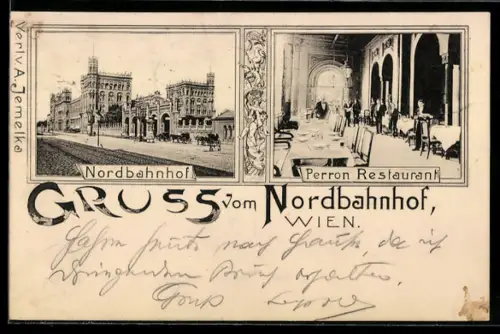 Verlv. A. Jemelka
Nordbahnhof.
Perron Restaurant
GRUSS vom Nordbahnhof,
WIEN.
nach Hause, da ich
dringenden Brief erhalten.
Gruß